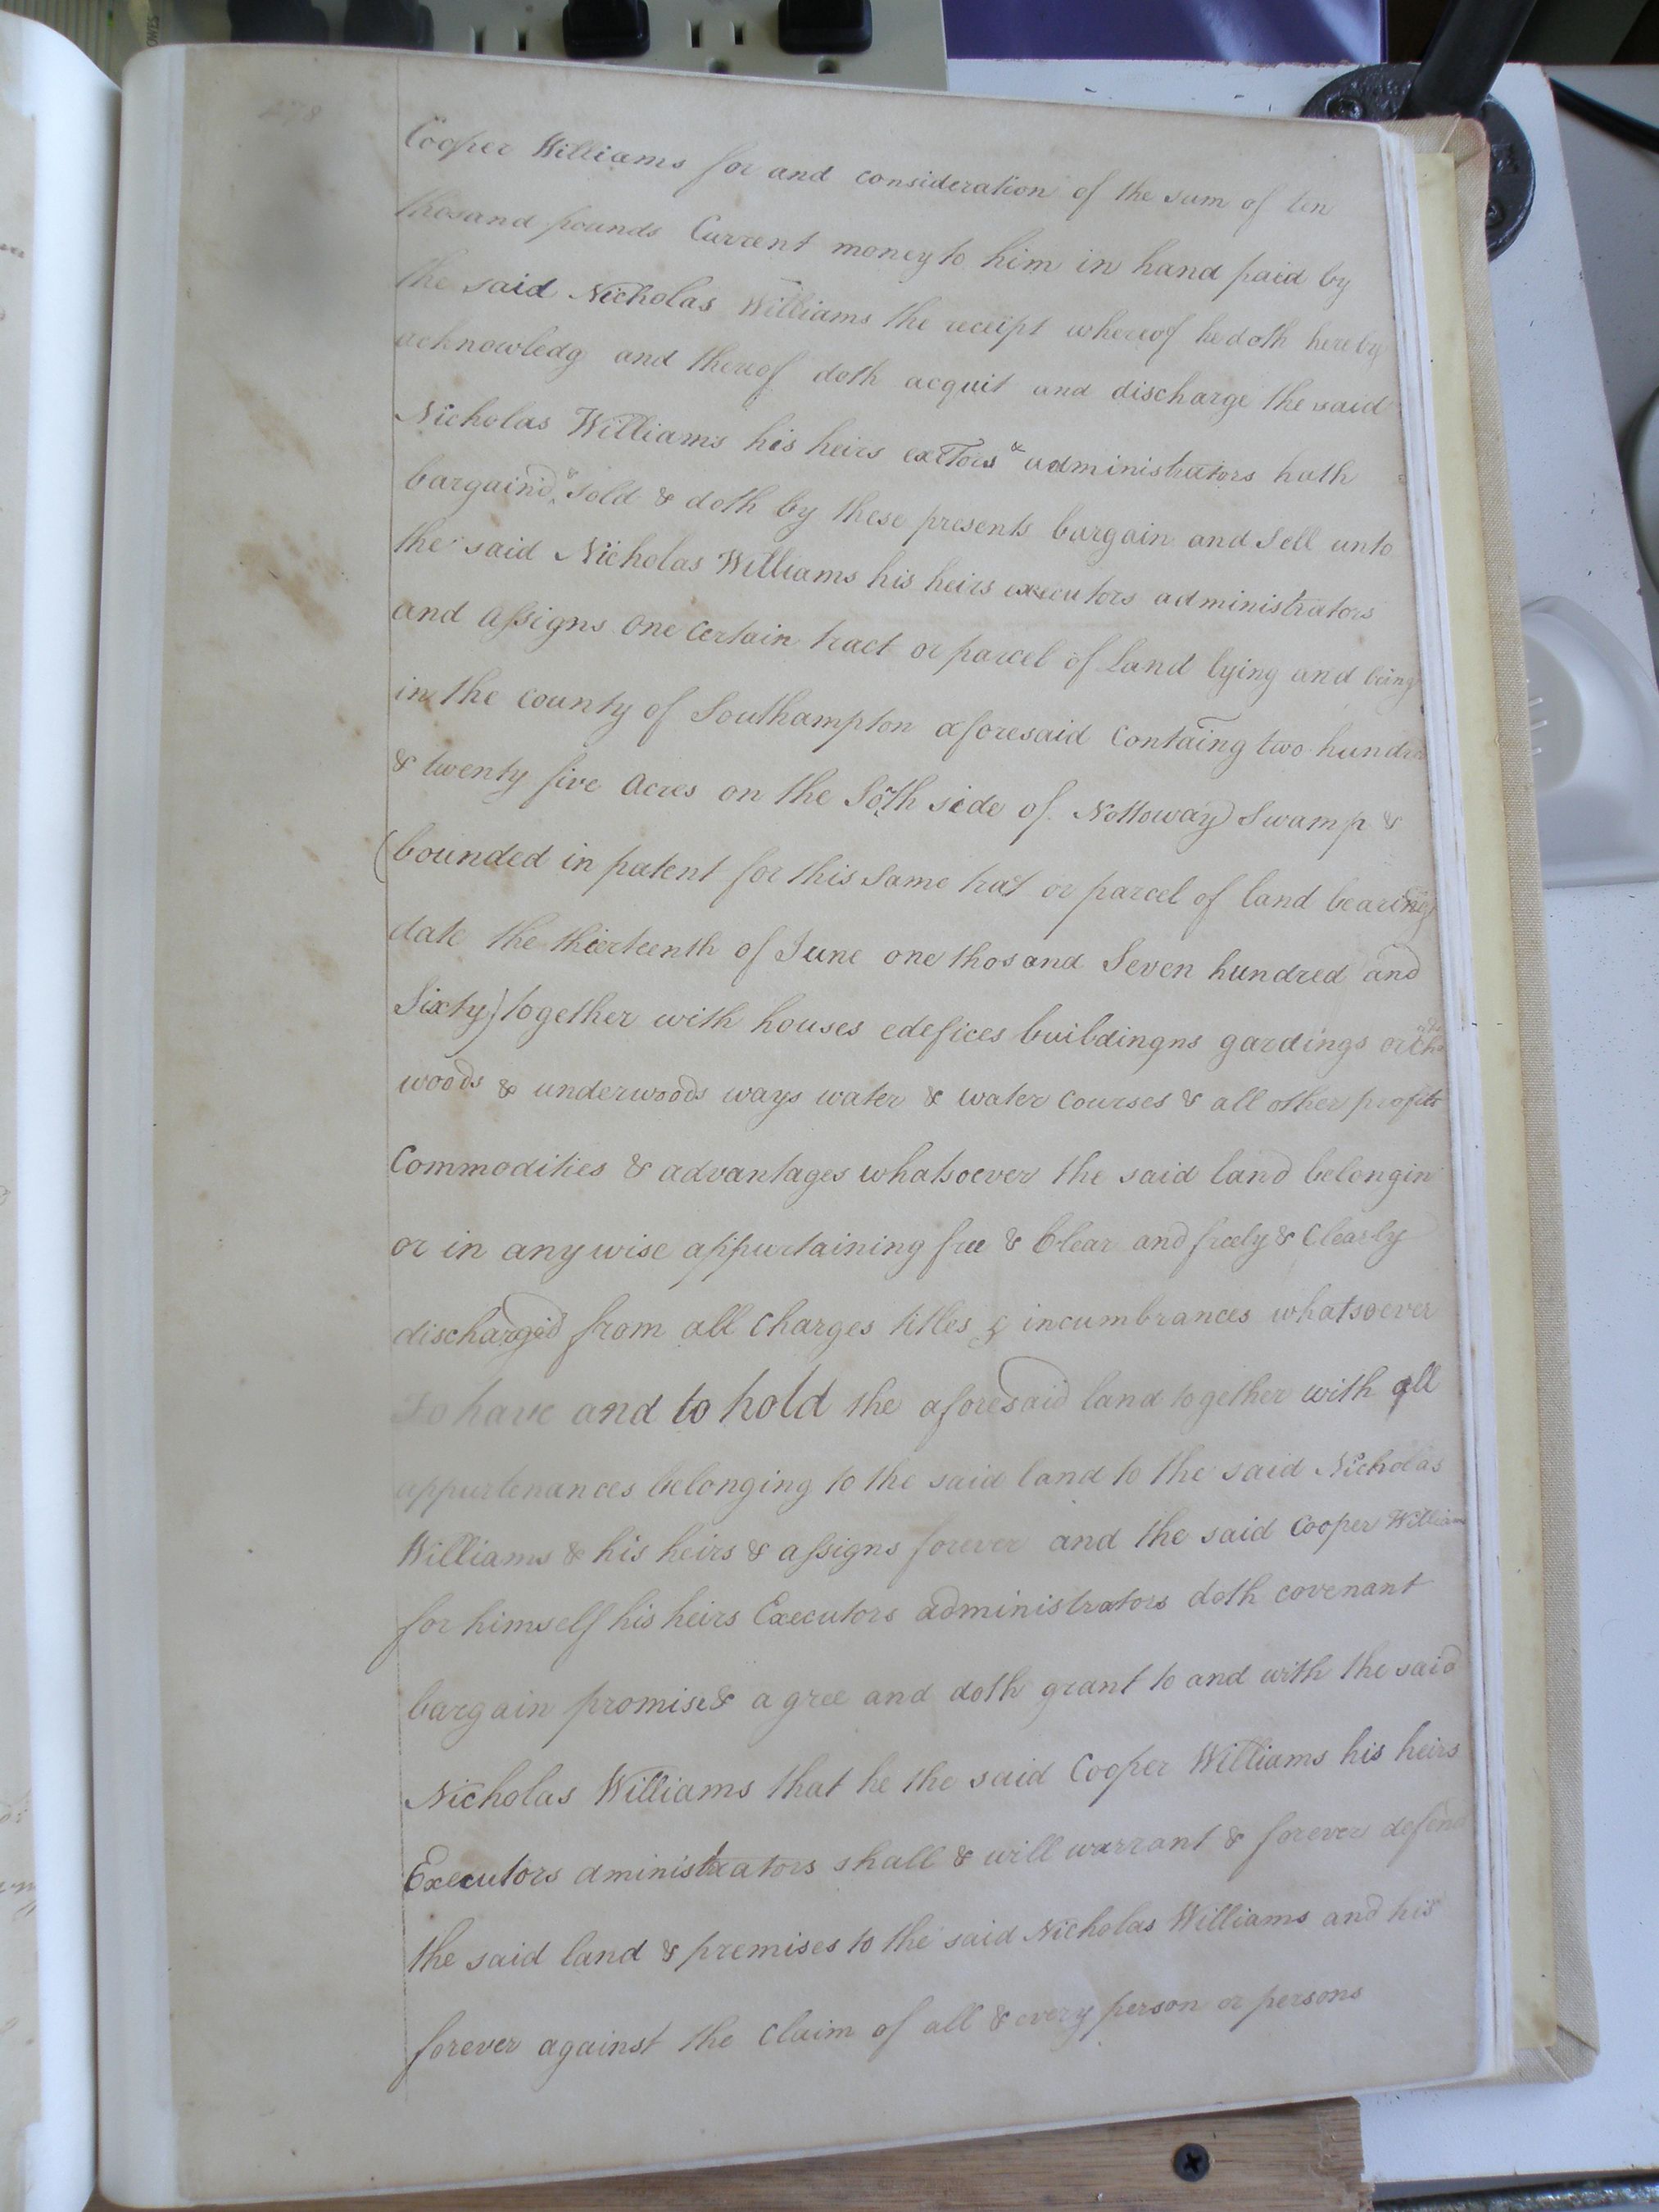 278
Cooper Williams for and consideration of the sum of ten
thosand pounds Current money to him in hand paid by
the said Nicholas Williams the receipt whereof he doth hereby
acknowledg and thereof doth acquit and discharge the said
Nicholas Williams his heirs exctors & administrators hath
bargain'd & sold & doth by these presents bargain and Sell unto
the said Nicholas Williams his heirs executors administrators
and assigns One Certain tract or parcel of Land lying and being
in the county of Southampton aforesaid Containg two hundred
& twenty five Acres on the Soth side of Nottoway Swamp &
(bounded in patent for this Same trat or parcel of land bearing
date the thirteenth of June one thosand Seven hundred and
Sixty) together with houses edefices buildingns gardings
woods & underwoods ways water & water Courses & all other profits
Commodities & advantages whatsoever the said land belongin
or in any wise appurtaining free & Clear and freely & Clearly
discharged from all Charges titles & incumbrances whatsoever
To have and to hold the aforesaid land together with all
appurtenances belonging to the said land to the said Nicholas
Williams & his heirs & assigns forever and the said Cooper William
for himself his heirs Executors administrators doth covenant
bargain promise & agree and doth grant to and with the said
Nicholas Williams that he the said Cooper Williams his heirs
Executors aministrators shall & will warrant & forever defend
the said land & premises to the said Nicholas Williams and his
forever against the Claim of all & every person or persons